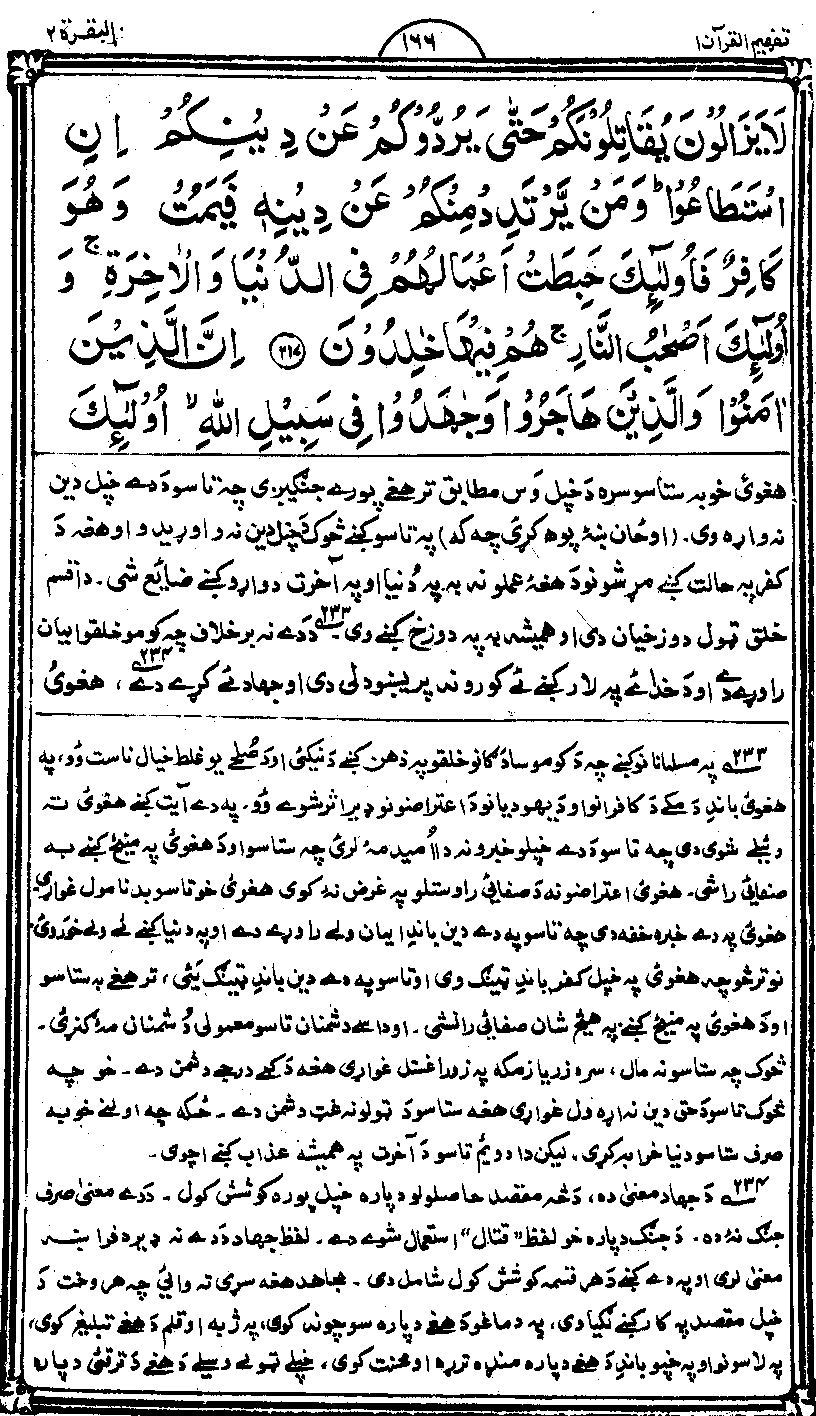 تفهيم القرآن ١
١٦٦
البقرة ٢
لَا يَزَالُوْنَ يُقَاتِلُوْنَكُمْ حَتّٰى يَرُدُّوْكُمْ عَنْ دِيْنِكُمْ اِنِ
اسْتَطَاعُوْا ؕ وَمَنْ يَّرْتَدِدْ مِنْكُمْ عَنْ دِيْنِهٖ فَيَمُتْ وَهُوَ
كَافِرٌ فَاُولٰٓئِكَ حَبِطَتْ اَعْمَالُهُمْ فِى الدُّنْيَا وَالْاٰخِرَةِ ۚ وَ
اُولٰٓئِكَ اَصْحٰبُ النَّارِ ۚ هُمْ فِيْهَا خٰلِدُوْنَ ٢١٧ اِنَّ الَّذِيْنَ
اٰمَنُوْا وَالَّذِيْنَ هَاجَرُوْا وَجٰهَدُوْا فِىْ سَبِيْلِ اللّٰهِ ۙ اُولٰٓئِكَ
هغوئ خو به ستاسو سره دَ خپل وَس مطابق تر هغے پورے جنګيږى چه تاسو دَ دے خپل دين
نه واړه وى. (او ځان ښۀ پوهه کړئ چه که) په تاسو کښے څوک دَ خپل دين نه واوړيدو او هغه دَ
کفر په حالت کښے مړ شو نو دَ هغۀ عملونه به په دُنيا او په آخرت دواړو کښے ضائع شى۔ دا قسم
خلق ټول دوزخيان دى او هميشه به په دوزخ کښے وى ٢٣٣ دَ دے نه برخلاف چه کومو خلقو ايمان
راوړے دے او دَ خدائے په لار کښے ئے کورونه پريښودلى دى او جهاد ئے کړے دے ٢٣٤، هغوئ
٢٣٣ په مسلمانانو کښے چه دَ کومو ساده ګانو خلقو په ذهن کښے دَ نيکئ او دَ صُلحے يو غلط خيال ناست وُو، په
هغوئ باندِ دَ مکے دَ کافرانو او دَ يهوديانو دَ اعتراضونو ډير اثر شوے وُو۔ په دے آيت کښے هغوئ ته
وئيلے شوى دى چه تاسو دَ دے خپلو خبرو نه دا اُميد مۀ لرئ چه ستاسو او دَ هغوئ په منځ کښے به
صفائى راشى۔ هغوئ اعتراضونه دَ صفائى راوستلو په غرض نۀ کوى هغوئ خو تاسو بدنامول غواړى
هغوئ په دے خبره خفه دى چه تاسو په دے دين باندِ ايمان ولے راوړے دے او په دنيا کښے ئے ولے خوروئ
نو تر څو چه هغوئ په خپل کفر باندِ ټينګ وى او تاسو په دے دين باندِ ټينګ يئى، تر هغے به ستاسو
او دَ هغوئ په منځ کښے په هيڅ شان صفائى رانشى۔ او داسے دشمنان تاسو معمولى دُشمنان مۀ ګنړئ۔
څوک چه ستاسو نه مال، سره زر يا زمکه په زور اغستل غواړى هغه دَ کمے درجے دشمن دے۔ خو چه
څوک تاسو دَ حق دين نه اړول غواړى هغه ستاسو دَ ټولو نه غټ دشمن دے۔ ځکه چه اولنے خو به
صرف ستاسو دنيا خرابه کړى. ليکن دا دوئم تاسو دَ آخرت په هميشه عذاب کښے اچوى۔
٢٣٤ دَ جهاد معنىٰ ده، دَ څه مقصد حاصلولو دپاره خپل پوره کوشش کول۔ دَ دے معنىٰ صرف
جنګ نۀ ده. دَ جنګ دپاره خو لفظ "قتال" استعمال شوے دے۔ لفظ جهاد دَ دے نه ډير دفراښه
معنىٰ لرى او په دے کښے دَ هر قسمه کوشش کول شامل دى۔ مجاهد هغه سړى ته وائى چه هر وخت دَ
خپل مقصد په کار کښے لګيا وى، په دماغو دَ هغے دپاره سوچونه کوى، په ژبه او قلم دَ هغے تبليغ کوى،
په لاسونو او په خپو باندِ دَ هغے دپاره منډه تړړه او محنت کوى، خپلے ټولے وسيلے دَ هغے دَ ترقئ دپاره